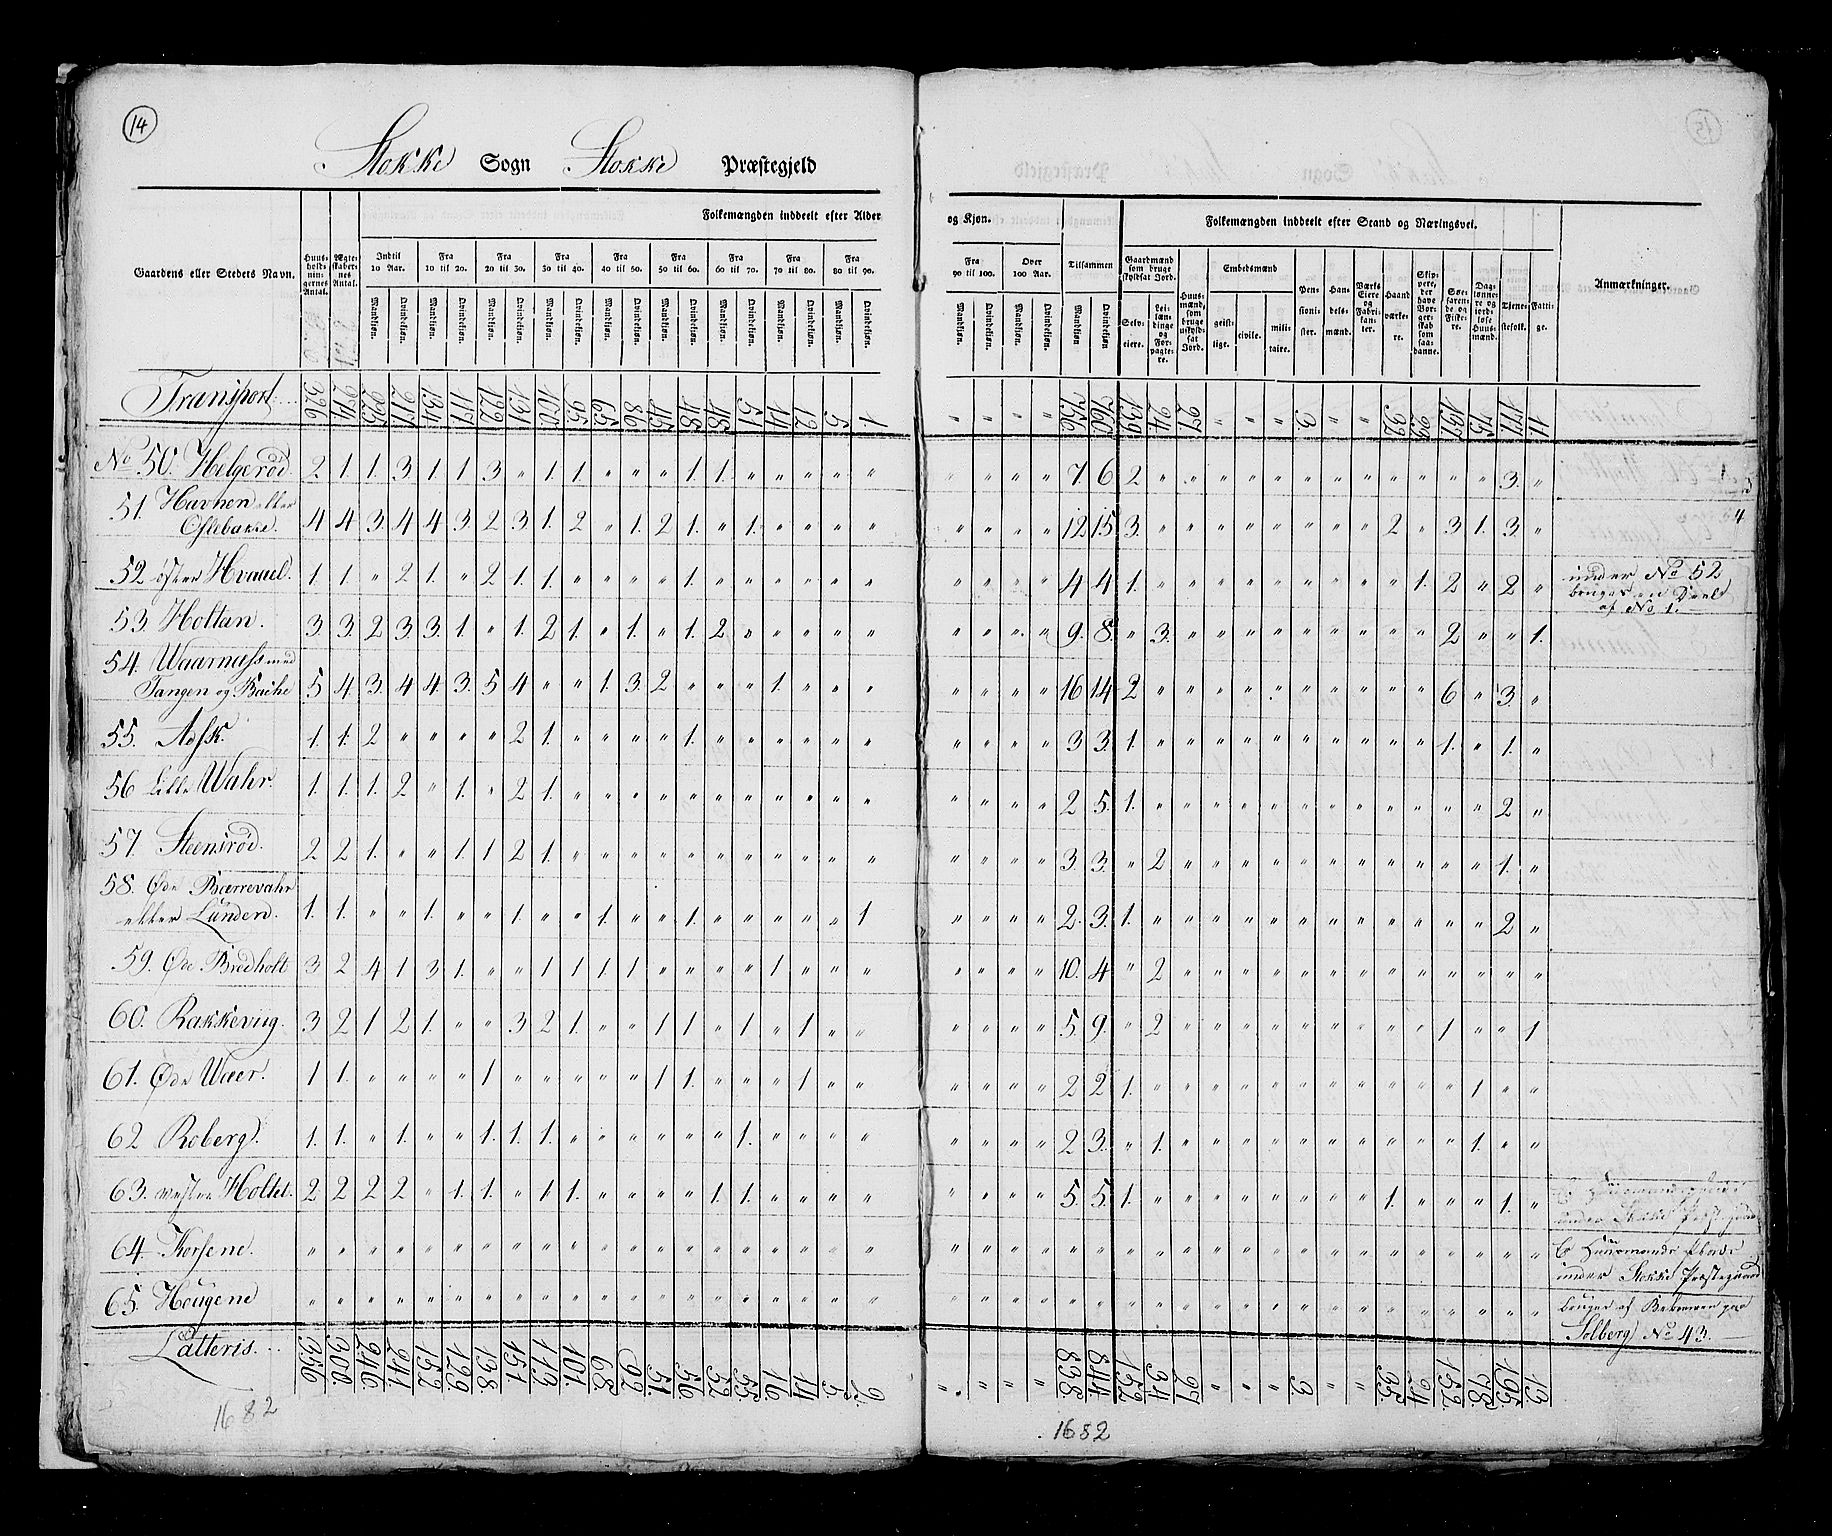 14
15
Stokke Sogn Stokke Præstegjeld
Folkemængden inddeelt efter Alder og Kjøn.
Folkemængden inddeelt efter Stand og Næringsvei.
Gaardens eller Stedets Navn.
Huusholdningernes Antal.
Ægteskabernes Antal.
Indtil 10 Aar.
Fra 10 til 20.
Fra 20 til 30.
Fra 30 til 40.
Fra 40 til 50.
Fra 50 til 60.
Fra 60 til 70.
Fra 70 til 80.
Fra 80 til 90.
Fra 90 til 100.
Over 100 Aar.
Tilsammen
Mandkiøn. Qvindekiøn.
Gaardmænd som bruge skyldsat Jord.
Selveiere.
Leilændinge og Forpagtere.
Huusmænd, som bruge uskyldsat Jord.
Embedsmænd
geistlige. civile. militaire.
Pensionister.
Handelsmænd.
Værks Eiere og Fabrikanter.
Haandværkere.
Skippere, der have Borgerskab som saadanne.
Søefarende og Fiskere.
Dagslønnere og jordløse Huusmænd.
Tienestefolk.
Fattige.
Anmærkninger.
Transport 326 274 225 217 134 117 122 131 100 95 65 86 45 48 48 51 14 12 5 1. " " " " 756 760 139 24 27 " " " 3 " " 32 23 137 75 177 11
No 50. Helgerød 2 1. 1. 3 1. 1. 3 " 1. 1. " " " 1. 1. " " " " " " " " " 7. 6 2 " " " " " " " " " " " " 3. "
51. Havnen eller Oslebakke. 4 4 3. 4 4 3. 2 3 1. 2 " 1. 2 1. " 1. " " " " " " " " 12 15 3. " " " " " " " " 2 " 3 1. 3 "
52 øster Hvauel. 1. 1. " 2 1. " 2 1. 1. " " " " 1. " " " " " " " " " " 4 4 1. " " " " " " " " " 1. 2 " 2 " under No 52
bruges en Deel
af No 1.
53. Holtan. 3 3. 2 3 3. 1. " 1. 2 1. " 1. " 1. 2 " " " " " " " " " 9. 8 " 3. " " " " " " " " " 2 " " 1.
54. Waarnass med Tangen og Bache 5 4 3. 4 4. 3 5 4 " " 1. 3. 2 " " " 1. " " " " " " " 16 14 2 " " " " " " " " " " 6 " 3. "
55. Ask 1. 1. 2 " " " " 2 1. " " " " 1. " " " " " " " " " " 3 3. 1. " " " " " " " " " " 1. " 1. "
56 Lille Wahr. 1. 1. 1. 2 " 1. " 2 1. " " " " " " " " " " " " " " " 2 5. 1. " " " " " " " " " " " " 2 "
57. Steensrød. 2 2 1. " " 1. 1 2 1. " " " " " " " " " " " " " " " 3 3. " 2 " " " " " " " " " " " 1. "
58. Øde Bærrevahr eller Lunden. 1. 1. " " 1. " " 1. " " 1. " " 1. " " " " " 1 " " " " 2. 3. 1. " " " " " " " " " " " " 2 "
59. Øde Bredholt 3 2 4 1 3 1. " " 1 1. 1. 1 " " " " 1 " " " " " " " 10. 4 " 2 " " " " " " " " " " " " "
60. Rakkeviig. 3 2 1 2 1. " " 3 2 1. " " 1 1. " 1. " 1. " " " " " " 5 9. " 2 " " " " " " " " " 1 " " 1
61. Øde Waer. 1 1. " " " " 1 " " " " " 1 1. " " " 1 " " " " " " 2 2 1. " " " " " " " " " " " 1 " "
62 Roberg. 1. 1. " 1. " " 1. 1. 1. " " " " " " 1. " " " " " " " " 2 3. " 1. " " " " " " " " " " 1. " "
63. vestre Holtet. 2 2 2 2 " 1. 1. " 1 1. " " " " 1 1. " " " " " " " " 5 5. 1. " " " " " " " " 1. " " " 1. "
64. Korsene. " " " "
Er Huusmands Pladse
under Stokke Præstegaard
65. Hougene " " " "
bruges af Beboeren paa
Solberg No 43.
Latteris 356 300 246 241 152 129 138 151 113. 101. 68. 92 51. 56 52 55. 16. 14 5. 2. " " " " 838 844 152 34 27 " " " 3 " " 35. 24 152. 78. 195. 13.
1682
1682